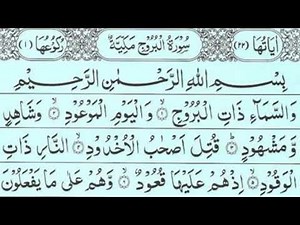 اٰيَاتُهَا (٢٢) سُوْرَةُ الْبُرُوْجِ مَكِّيَّةٌ رُكُوْعُهَا (١)
بِسْمِ اللهِ الرَّحْمٰنِ الرَّحِيْمِ
وَالسَّمَآءِ ذَاتِ الْبُرُوْجِ ۝ وَالْيَوْمِ الْمَوْعُوْدِ ۝ وَشَاهِدٍ
وَّمَشْهُوْدٍ ۝ قُتِلَ اَصْحٰبُ الْاُخْدُوْدِ ۝ النَّارِ ذَاتِ
الْوَقُوْدِ ۝ اِذْهُمْ عَلَيْهَا قُعُوْدٌ ۝ وَّهُمْ عَلٰى مَا يَفْعَلُوْنَ